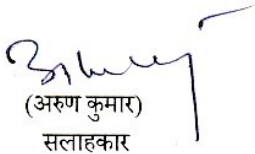 (अरुण कुमार)
सलाहकार